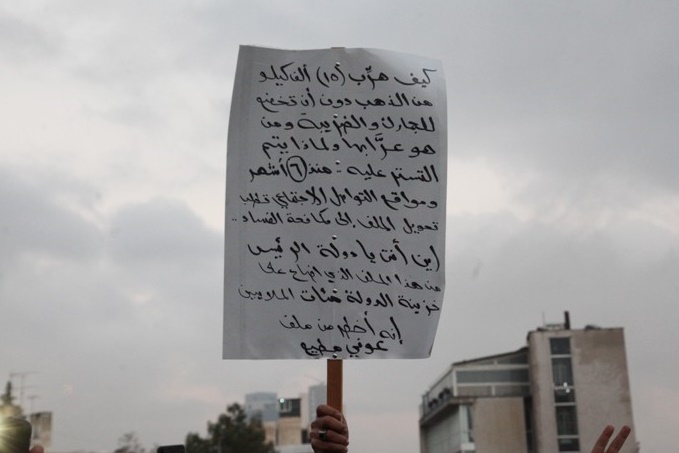 كيف هرّب (١٥) ألف كيلو
من الذهب دون أن تخضع
للجمارك والضريبة ومن
هو عرّابها ولماذا يتم
التستر عليه .. منذ (٦) أشهر
ومواقع التواصل الاجتماعي تطلب
تحويل الملف إلى مكافحة الفساد ..
اين أنت يا دولة الرئيس
من هذا الملف الذي على
خزينة الدولة مئات الملايين
إنه أخطر من ملف
عوني مطيع